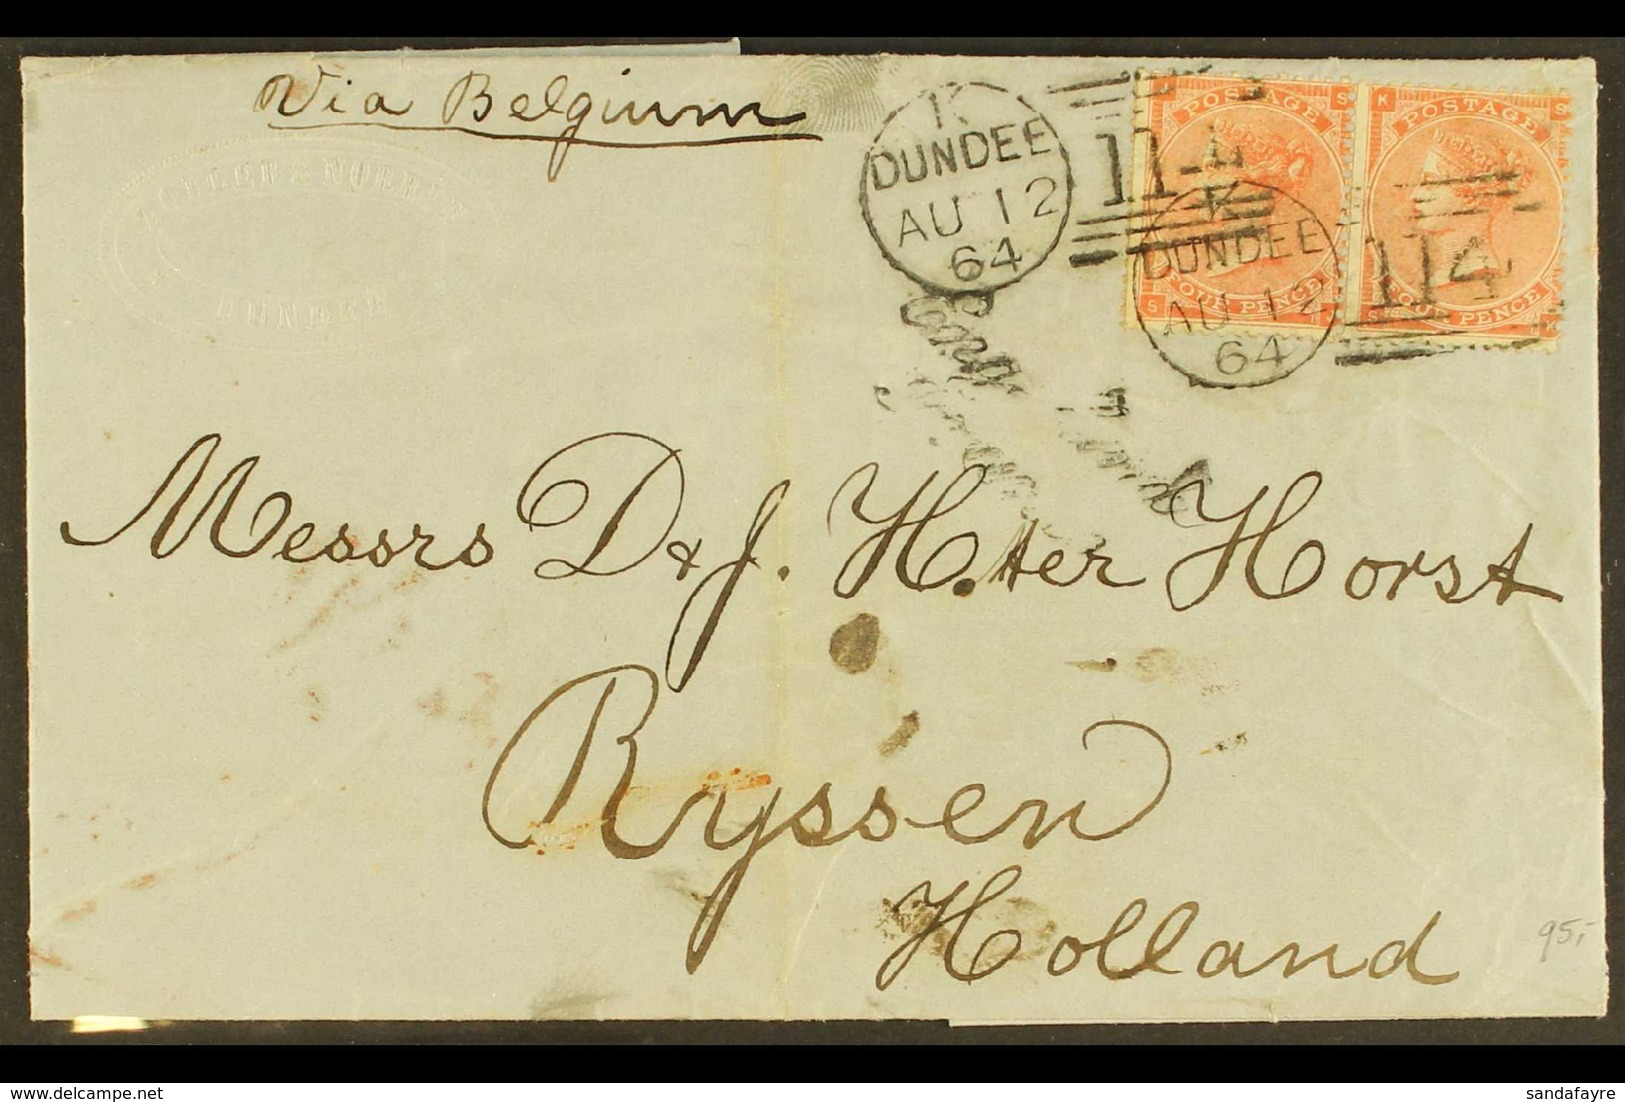 Via Belgium
DUNDEE
K
DUNDEE
AU 12
64
114
POSTAGE
FOUR PENCE
K
DUNDEE
AU 12
64
114
POSTAGE
FOUR PENCE
Messrs D & J. H. ter Horst
Ryssen
Holland
95,-
sandafayre